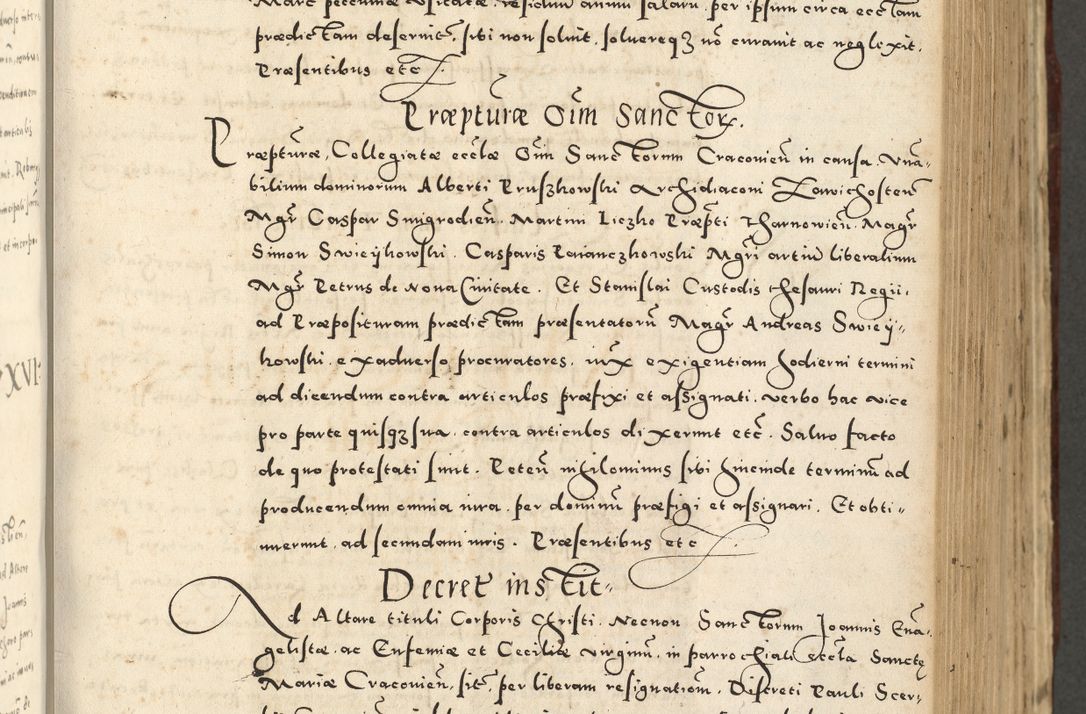 prædictam deseruit, sibi non soluit, soluereqꝫ nō curauit ac neglexit.
Præsentibus etc.
Præpturæ Oīm Sanctor.
Præpturæ, Collegiatæ ecclæ Oīm Sanctorum Cracovien̄ in causa. Vna-
bilium dominorum Alberti Pruszkowski Archidiaconi Zawichosten̄
Mgr̄ Caspar Smigrodien̄. Martini Liczko Præpti Tharnowien̄. Magr̄
Simon Swieÿkowski. Casparis Raianczkowski Mgr̄i artiū liberalium
Mgr̄ Petrus de Nona Ciuitate. Et Stanislai Custodis Thesauri Regii.
ad Præposituram prædictam præsentatorū Magr̄ Andreas Swieÿ-
kowski. ex aduerso procuratores. iux exigentiam hodierni termini
ad dicendum contra articulos præfixi et assignati. verbo hac vice
pro parte quisqꝫ sua. contra articulos dixerunt etc̄. Saluo facto
de quo protestati sunt. Peten̄ nihilominus sibi hincinde terminū ad
producendum omnia iura. per dominū præfigi et assignari. Et obti-
nuerunt. ad secundam iuris. Præsentibus etc.
Decret instit-
Ad Altare tituli Corporis Christi. Necnon Sanctorum Joannis Eua-
gelistæ. ac Eufemiæ et Ceciliæ virginū. in parrochiali eccla Sanctę
Mariæ Cracovien̄, sit, per liberam resignatiom. Discreti Pauli Scer-